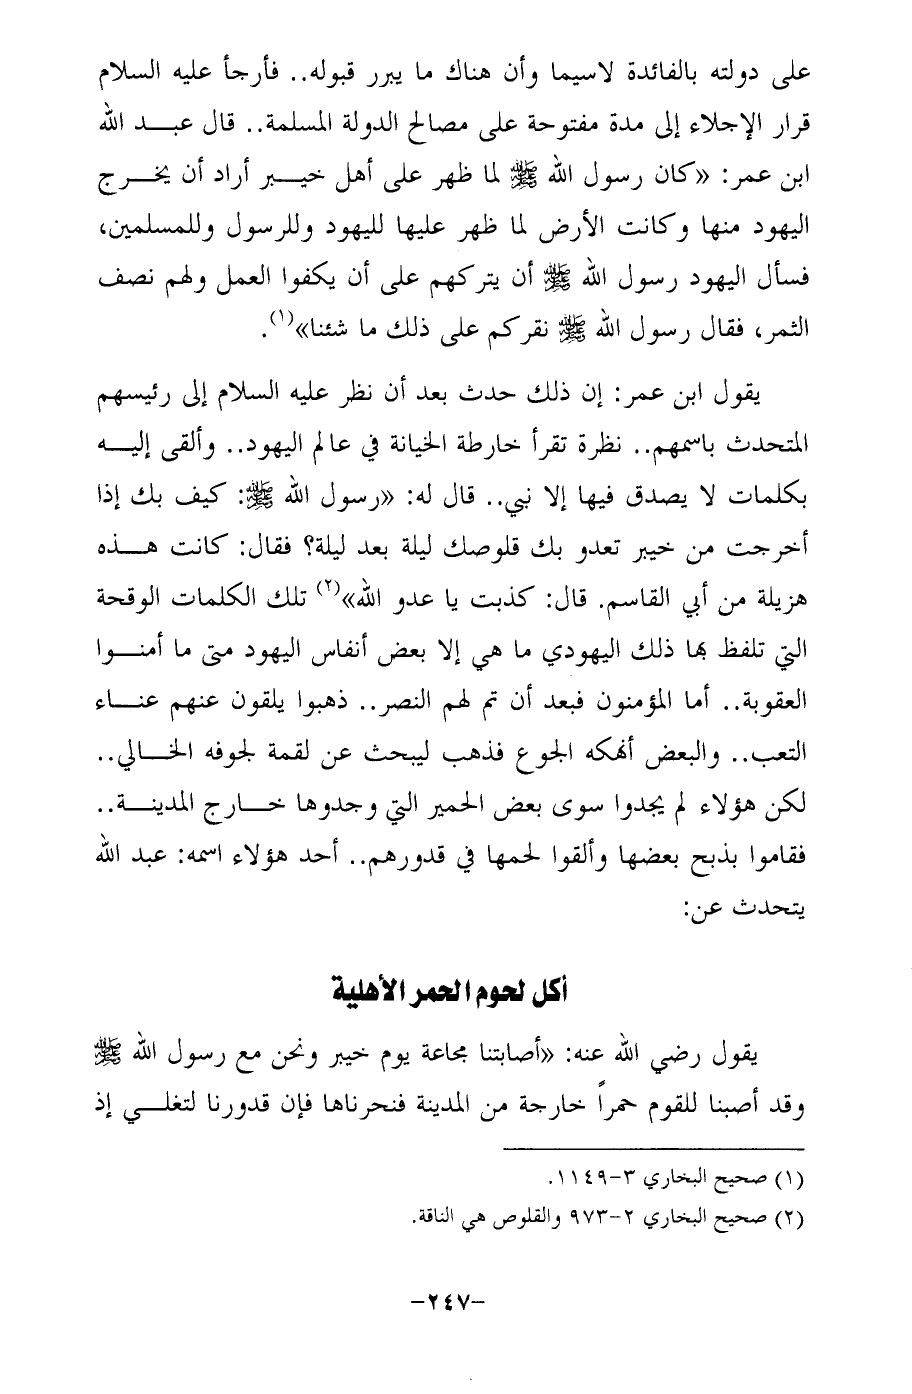 على دولته بالفائدة لاسيما وأن هناك ما يبرر قبوله.. فأرجأ عليه السلام
قرار الإجلاء إلى مدة مفتوحة على مصالح الدولة المسلمة.. قال عبد الله
ابن عمر: «كان رسول الله ﷺ لما ظهر على أهل خيبر أراد أن يخرج
اليهود منها وكانت الأرض لما ظهر عليها لليهود وللرسول وللمسلمين،
فسأل اليهود رسول الله ﷺ أن يتركهم على أن يكفوا العمل ولهم نصف
الثمر، فقال رسول الله ﷺ نقركم على ذلك ما شئنا»(١).
يقول ابن عمر: إن ذلك حدث بعد أن نظر عليه السلام إلى رئيسهم
المتحدث باسمهم.. نظرة تقرأ خارطة الخيانة في عالم اليهود.. وألقى إليه
بكلمات لا يصدق فيها إلا نبي.. قال له: «رسول الله ﷺ: كيف بك إذا
أخرجت من خيبر تعدو بك قلوصك ليلة بعد ليلة؟ فقال: كانت هذه
هزيلة من أبي القاسم. قال: كذبت يا عدو الله»(٢) تلك الكلمات الوقحة
التي تلفظ بها ذلك اليهودي ما هي إلا بعض أنفاس اليهود متى ما أمنوا
العقوبة.. أما المؤمنون فبعد أن تم لهم النصر.. ذهبوا يلقون عنهم عناء
التعب.. والبعض أنهكه الجوع فذهب ليبحث عن لقمة لجوفه الخالي..
لكن هؤلاء لم يجدوا سوى بعض الحمير التي وجدوها خارج المدينة..
فقاموا بذبح بعضها وألقوا لحمها في قدورهم.. أحد هؤلاء اسمه: عبد الله
يتحدث عن:
أكل لحوم الحمر الأهلية
يقول رضي الله عنه: «أصابتنا مجاعة يوم خيبر ونحن مع رسول الله ﷺ
وقد أصبنا للقوم حمراً خارجة من المدينة فنحرناها فإن قدورنا لتغلي إذ
(١) صحيح البخاري ٣-١١٤٩.
(٢) صحيح البخاري ٢-٩٧٣ والقلوص هي الناقة.
-٢٤٧-